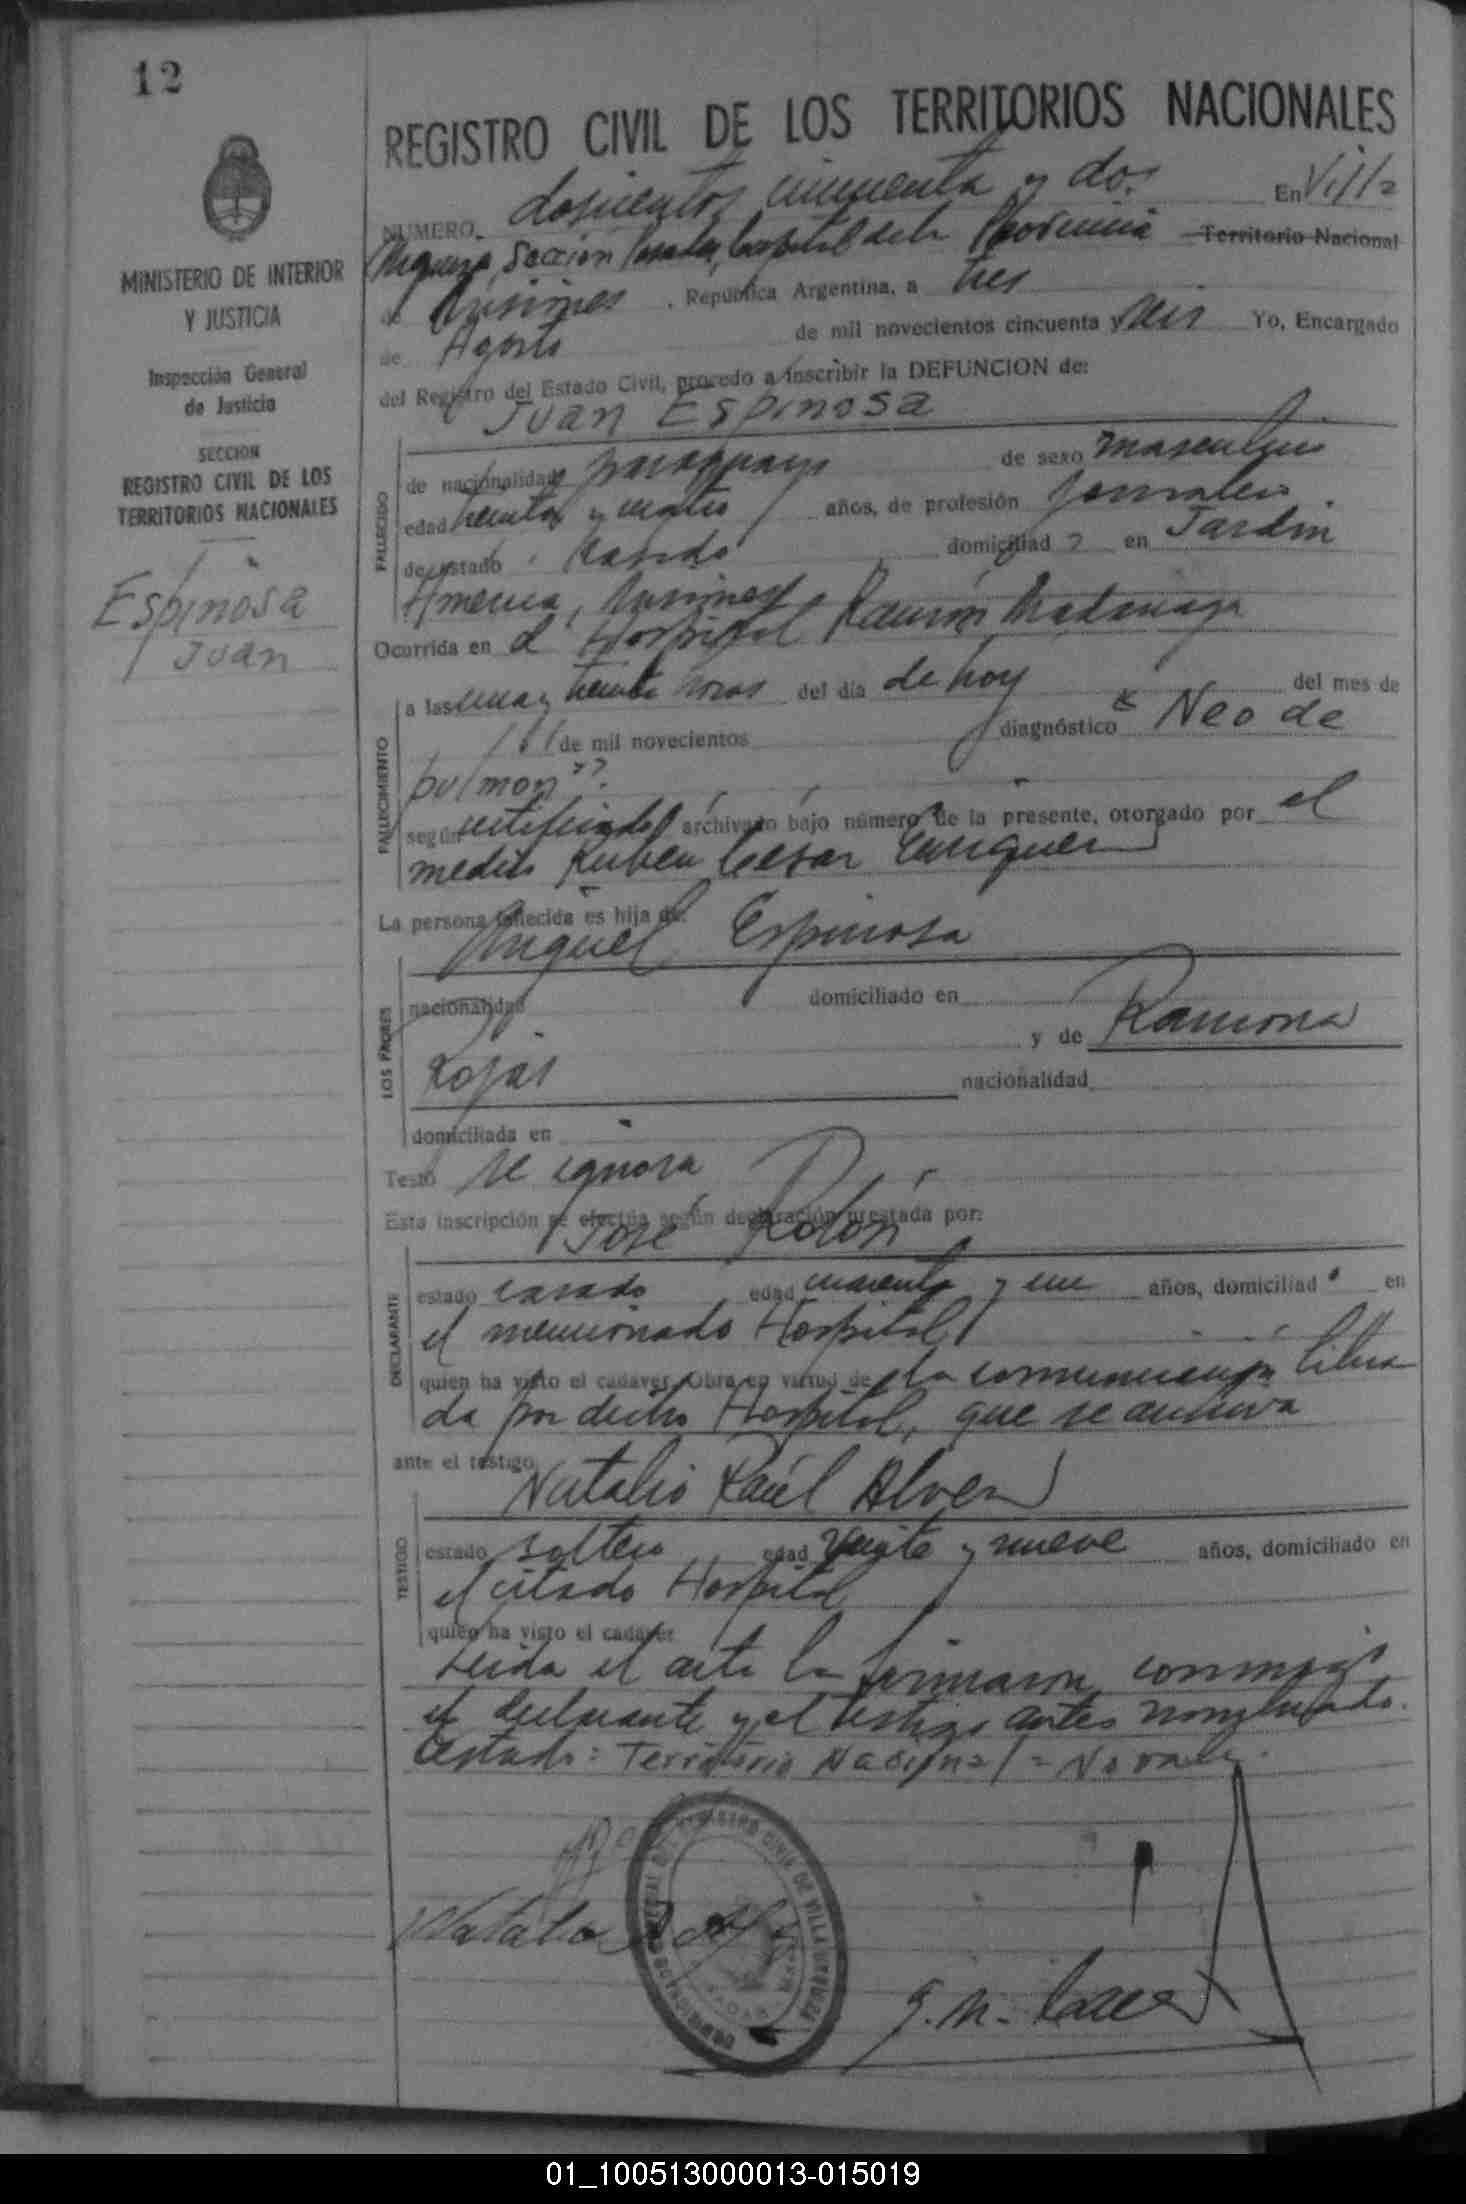 12
REGISTRO CIVIL DE LOS TERRITORIOS NACIONALES
MINISTERIO DE INTERIOR
Y JUSTICIA
Inspección General
de Justicia
SECCION
REGISTRO CIVIL DE LOS
TERRITORIOS NACIONALES
Espinosa
Juan
NUMERO dosientos cincuenta y dos En Villa
Urquiza, Sección Posadas, Capital de la Provincia Territorio Nacional
de Misiones, República Argentina, a tres
de Agosto de mil novecientos cincuenta y seis Yo, Encargado
del Registro del Estado Civil, procedo a inscribir la DEFUNCION de:
Juan Espinosa
FALLECIDO
de nacionalidad paraguayo de sexo masculino
edad treinta y cuatro años, de profesión jornalero.
de estado domiciliad en Jardin
America, Misiones
Ocurrida en el Hospital Ramón Madariaga
FALLECIMIENTO
a las una y treinta horas del día de hoy del mes de
de mil novecientos diagnóstico "Neo de
pulmon".
según certificado archivado bajo número de la presente, otorgado por el
medico Ruben Cesar
La persona fallecida es hija de:
Miguel Espinosa
LOS PADRES
nacionalidad domiciliado en
y de Ramona
Rojas nacionalidad
domiciliada en
Testó se ignora
Esta inscripción se efectúa según declaración prestada por:
José Rolón
DECLARANTE
estado casado edad cuarenta y un años, domiciliado en
el mencionado Hospital
quien ha visto el cadáver. Obra en virtud de la comunicación libra
da por dicho Hospital, que se archiva
ante el testigo
Natalio Raúl Alvez
TESTIGO
estado soltero edad veinte y nueve años, domiciliado en
el citado Hospital
quien ha visto el cadáver
Leida el acta la firmaron conmigo
el declarante y el testigo antes nombrado.
Testado: Territorio Nacional = No vale.
Natalio R. Al
REGISTRO CIVIL DE VILLA URQUIZA
01_100513000013-015019